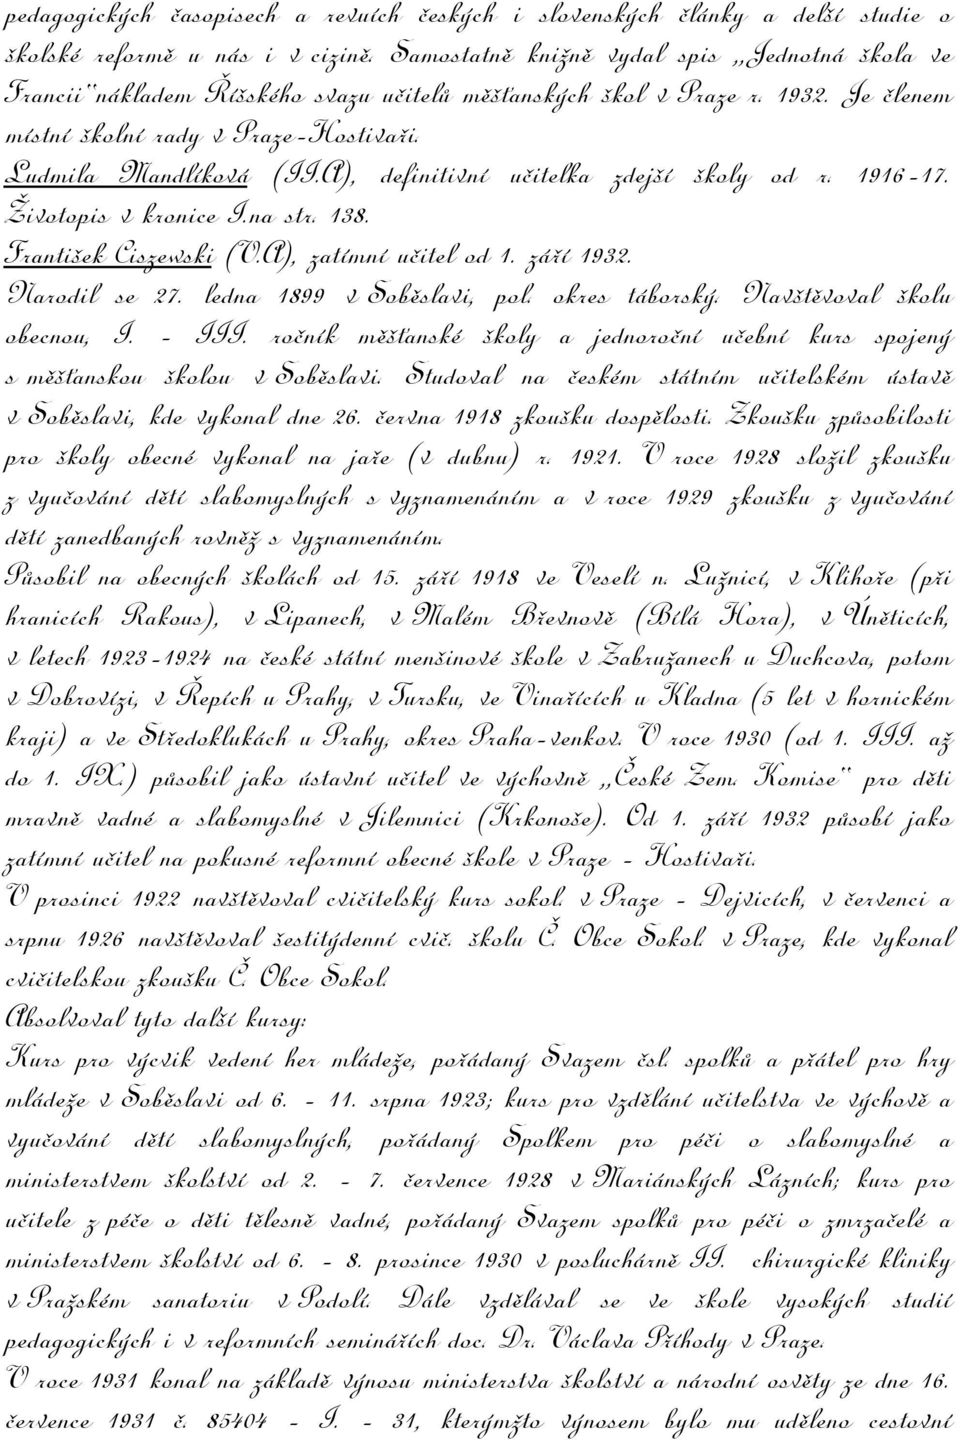 pedagogických časopisech a revuích českých i slovenských články a delší studie o
školské reformě u nás i v cizině. Samostatně knižně vydal spis „Jednotná škola ve
Francii“nákladem Říšského svazu učitelů měšťanských škol v Praze r. 1932. Je členem
místní školní rady v Praze-Hostivaři.
Ludmila Mandlíková (II.A), definitivní učitelka zdejší školy od r. 1916-17.
Životopis v kronice I.na str. 138.
František Ciszewski (V.A), zatímní učitel od 1. září 1932.
Narodil se 27. ledna 1899 v Soběslavi, pol. okres táborský. Navštěvoval školu
obecnou, I. - III. ročník měšťanské školy a jednoroční učební kurs spojený
s měšťanskou školou v Soběslavi. Studoval na českém státním učitelském ústavě
v Soběslavi, kde vykonal dne 26. června 1918 zkoušku dospělosti. Zkoušku způsobilosti
pro školy obecné vykonal na jaře (v dubnu) r. 1921. V roce 1928 složil zkoušku
z vyučování dětí slabomyslných s vyznamenáním a v roce 1929 zkoušku z vyučování
dětí zanedbaných rovněž s vyznamenáním.
Působil na obecných školách od 15. září 1918 ve Veselí n. Lužnicí, v Klihoře (při
hranicích Rakous), v Lipanech, v Malém Břevnově (Bílá Hora), v Úněticích,
v letech 1923-1924 na české státní menšinové škole v Zabružanech u Duchcova, potom
v Dobrovízi, v Řepích u Prahy, v Tursku, ve Vinařících u Kladna (5 let v hornickém
kraji) a ve Středoklukách u Prahy, okres Praha-venkov. V roce 1930 (od 1. III. až
do 1. IX.) působil jako ústavní učitel ve výchovně „České Zem. Komise“ pro děti
mravně vadné a slabomyslné v Jilemnici (Krkonoše). Od 1. září 1932 působí jako
zatímní učitel na pokusné reformní obecné škole v Praze - Hostivaři.
V prosinci 1922 navštěvoval cvičitelský kurs sokol. v Praze - Dejvicích, v červenci a
srpnu 1926 navštěvoval šestitýdenní cvič. školu Č. Obce Sokol. v Praze, kde vykonal
cvičitelskou zkoušku Č. Obce Sokol.
Absolvoval tyto další kursy:
Kurs pro výcvik vedení her mládeže, pořádaný Svazem čsl. spolků a přátel pro hry
mládeže v Soběslavi od 6. - 11. srpna 1923; kurs pro vzdělání učitelstva ve výchově a
vyučování dětí slabomyslných, pořádaný Spolkem pro péči o slabomyslné a
ministerstvem školství od 2. - 7. července 1928 v Mariánských Lázních; kurs pro
učitele z péče o děti tělesně vadné, pořádaný Svazem spolků pro péči o zmrzačelé a
ministerstvem školství od 6. - 8. prosince 1930 v posluchárně II. chirurgické kliniky
v Pražském sanatoriu v Podolí. Dále vzdělával se ve škole vysokých studií
pedagogických i v reformních seminářích doc. Dr. Václava Příhody v Praze.
V roce 1931 konal na základě výnosu ministerstva školství a národní osvěty ze dne 16.
července 1931 č. 85404 - I. - 31, kterýmžto výnosem bylo mu uděleno cestovní